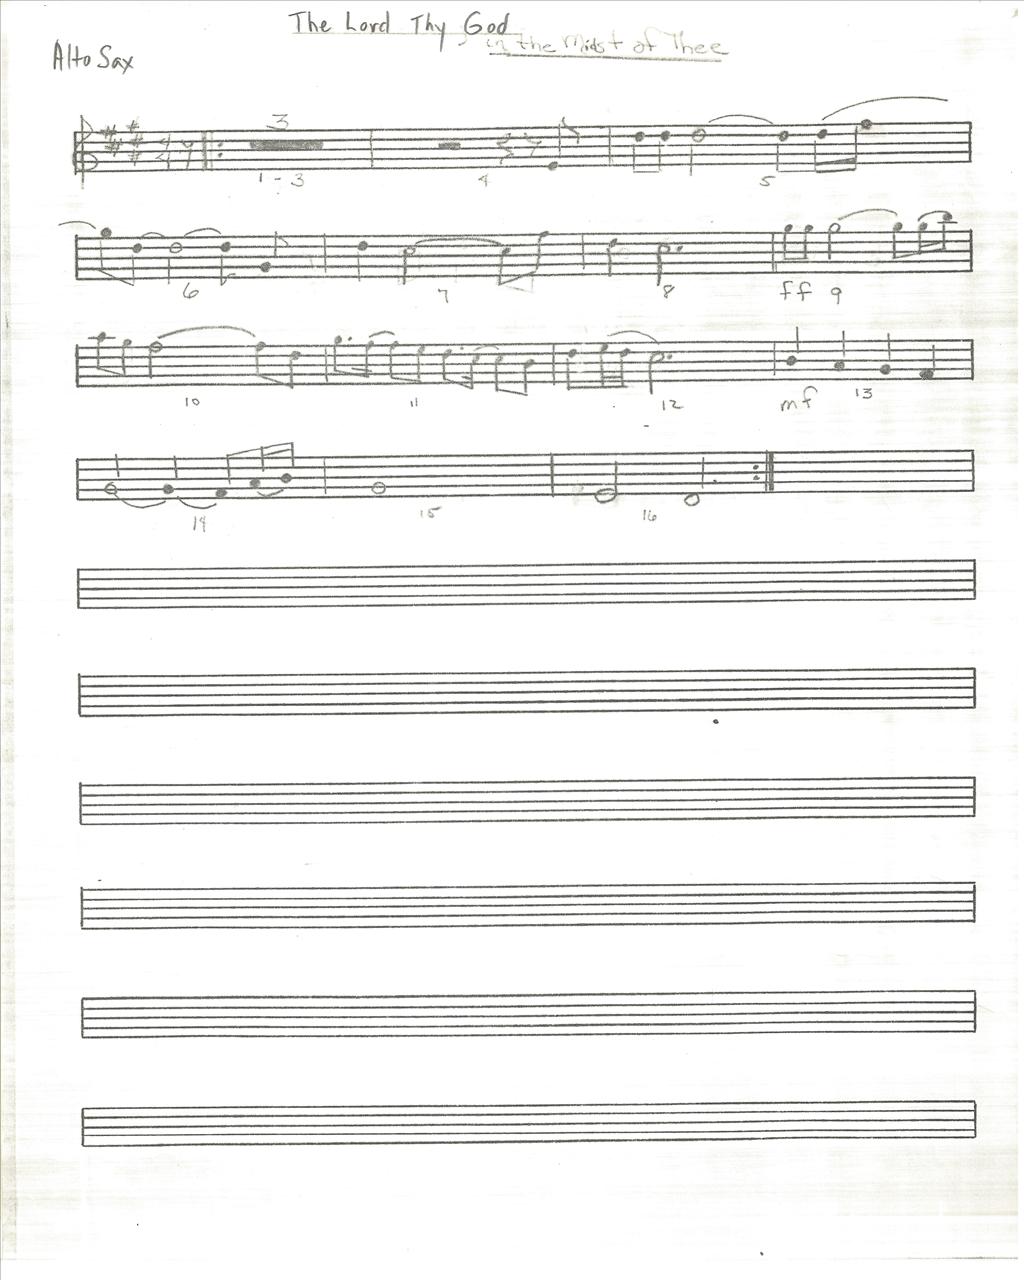 The Lord Thy God
in the Midst of Thee
Alto Sax
4
4
3
1 - 3
4
5
6
7
8
ff
9
10
11
12
mf
13
14
15
16